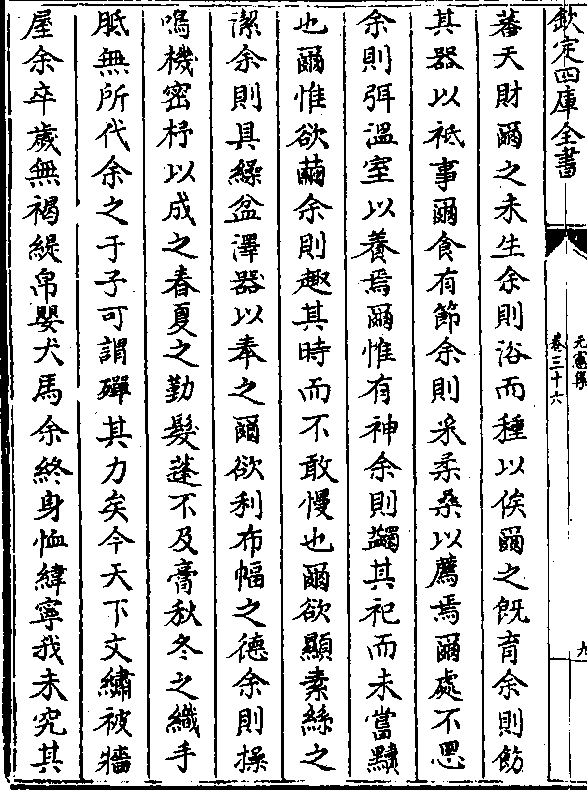 欽定四庫全書
元憲集
卷三十六
九
蕃天財爾之未生余則浴而種以俟爾之既育余則飭
其器以祗事爾食有節余則采柔桑以薦焉爾處不愳
余則弭溫室以養焉爾惟有神余則蠲其祀而未嘗黷
也爾惟欲繭余則趣其時而不敢慢也爾欲顯素絲之
潔余則具繰盆澤器以奉之爾欲利布幅之德余則操
鳴機密杼以成之春夏之勤髮蓬不及膏秋冬之織手
胝無所代余之于子可謂殫其力矣今天下文繡被牆
屋余卒歲無褐緹帛嬰犬馬余終身恤緯寧我未究其